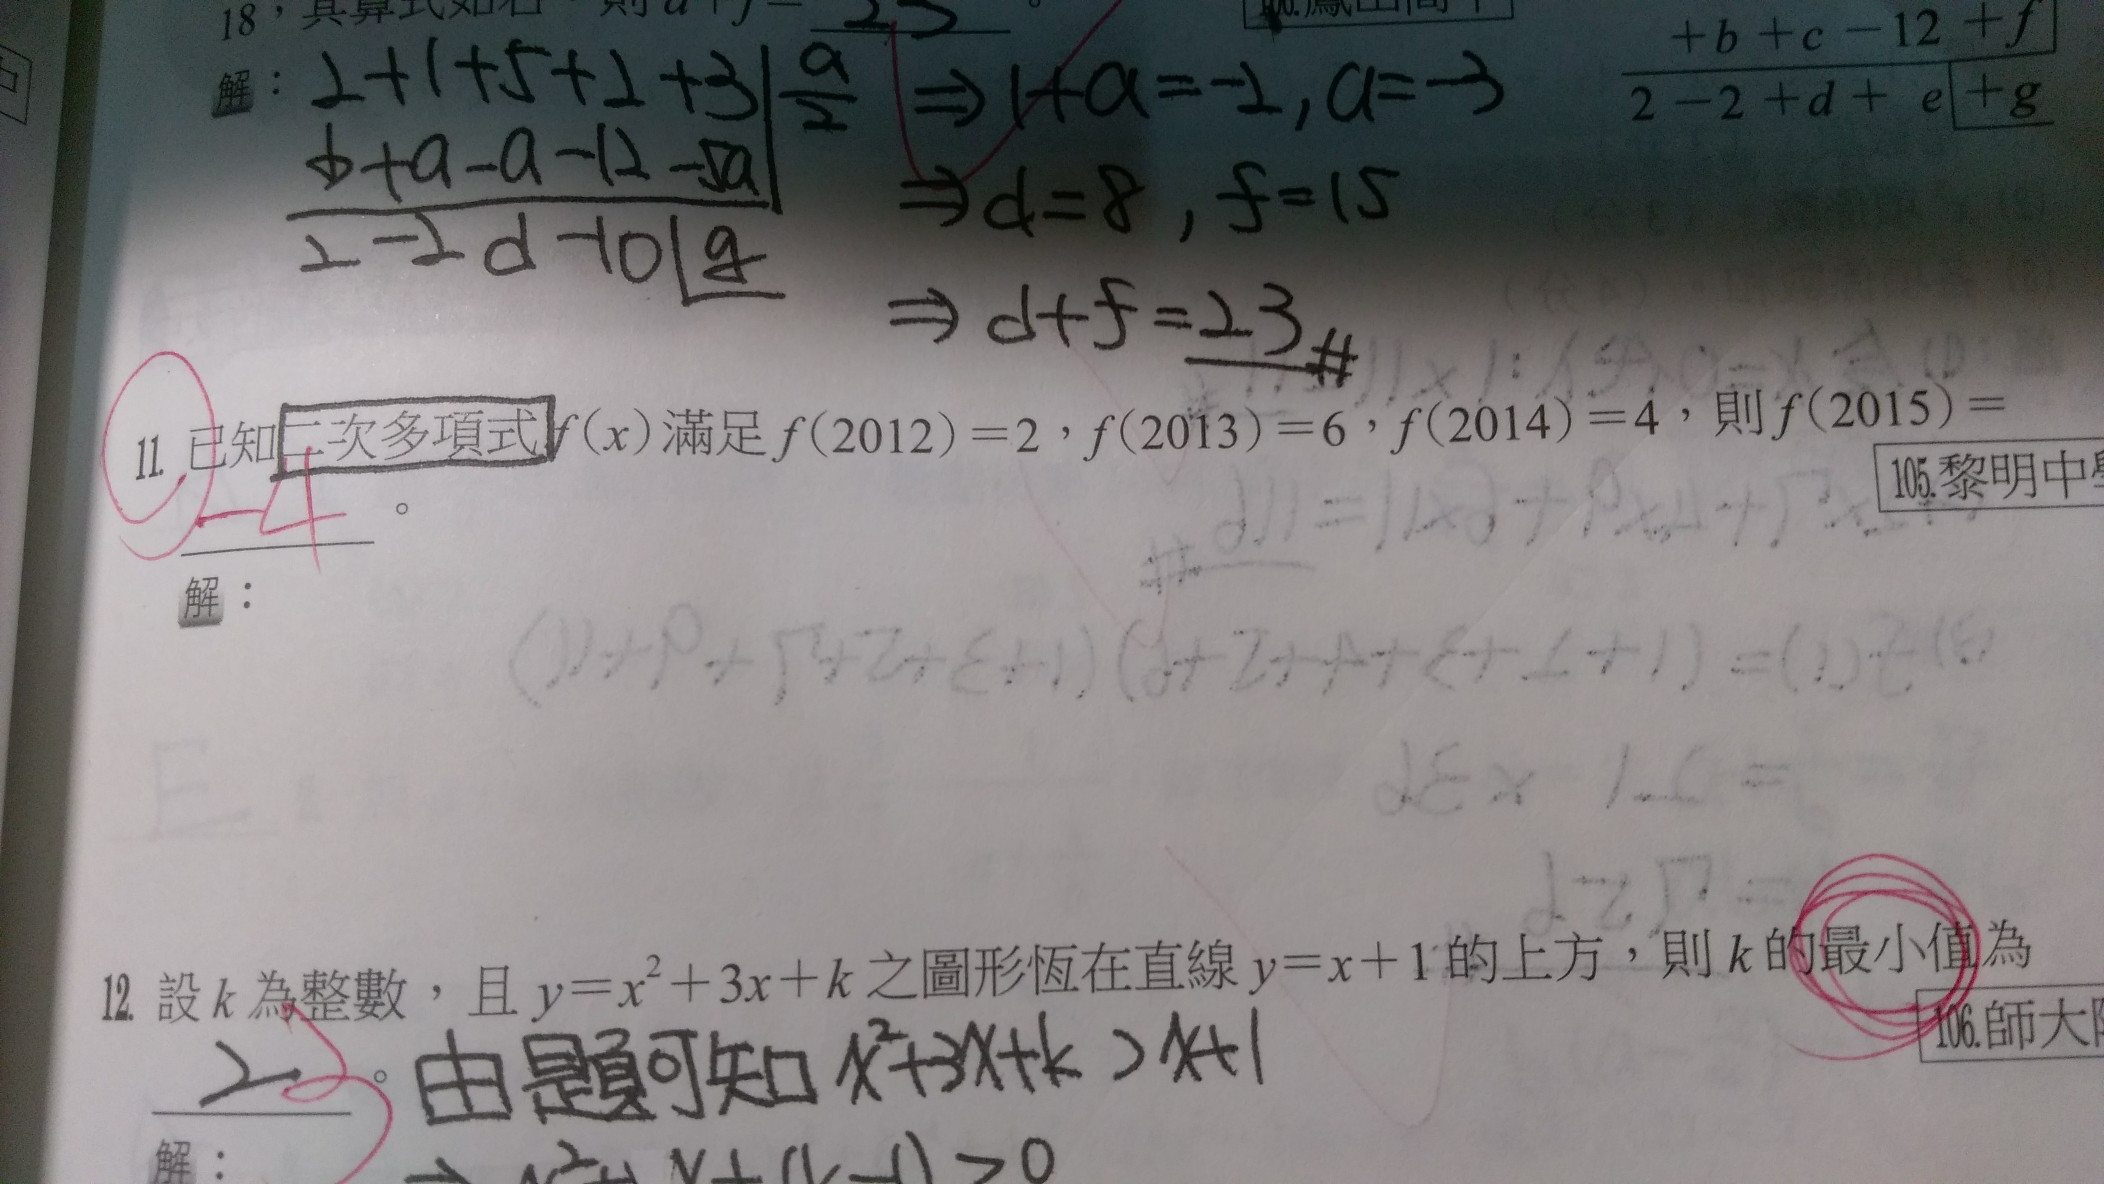 18，其算式如右，則d+f= 23 。
106.鳳山高中
+b +c −12 +f
2 −2 +d + e +g
解： 2+1+5+2+3 a/2 ⇒ 1+a=-2, a=-3
b+a-a-12-5a ⇒ d=8, f=15
2-2 d -10 g
⇒ d+f=23#
11. 已知二次多項式f(x)滿足f(2012)=2，f(2013)=6，f(2014)=4，則f(2015)=
105.黎明中
-4 。
解：
12. 設k為整數，且y=x²+3x+k之圖形恆在直線y=x+1的上方，則k的最小值為
106.師大附
2 。 由題可知 x²+3x+k > x+1
3
解： ⇒ x²+ x+(k-1)>0